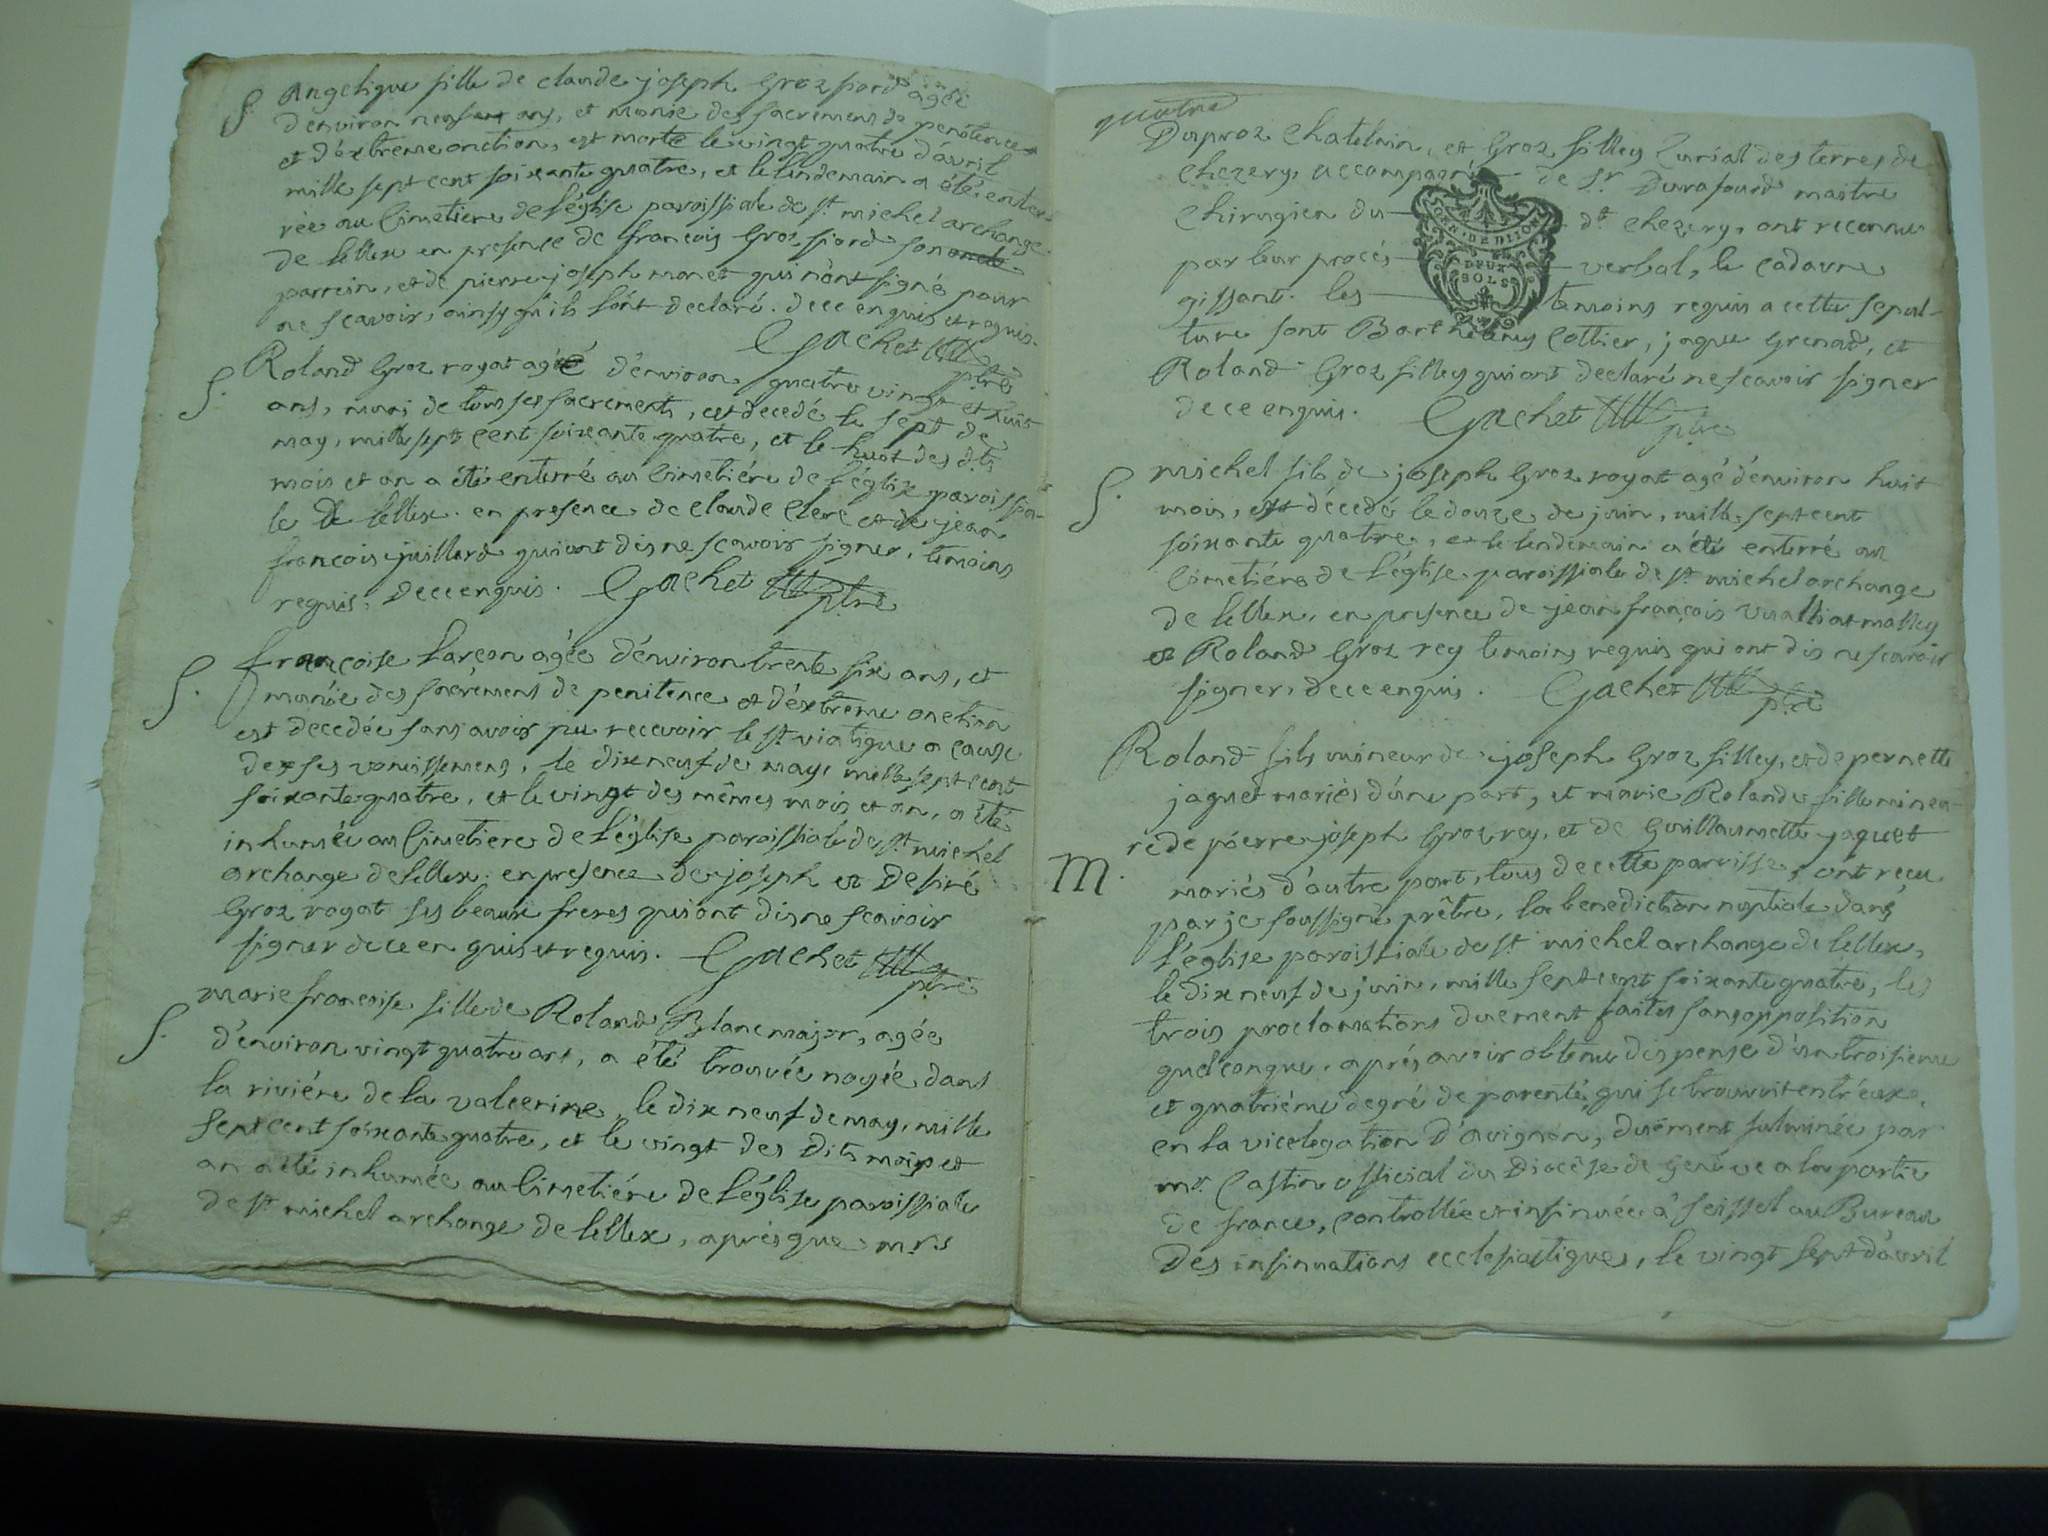 S. Angelique fille de claude joseph Groz fiord agée
d'environ neuf ans, et munie des sacremens de penitence
et d'extreme onction, est morte le vingt quatre d'avril
mille sept cent soixante quatre, et le lendemain a été enter-
rée au Cimetiere de l'église paroissiale de st michel archange
de lellex en presence de francois Groz fiord son oncle
parrein, et de pierre joseph monet qui n'ont signé pour
ne scavoir, ainsy qu'ils l'ont declaré. de ce enquis et requis.
Gachet ptre
S. Roland Groz royat agé d'environ quatre vingt et huit
ans, muni de tous ses sacrements, est decedé le sept de
may, mille sept cent soixante quatre, et le huit des dts
mois et an a été enterré au Cimetiére de l'église paroissia-
le de lellex. en presence de claude Clerc et de jean
françois juillard qui ont dis ne scavoir signer, temoins
requis, de ce enquis. Gachet ptre
S. françoise Lançon agée d'environ trente six ans, et
munie des sacremens de penitence et d'extreme onction
est decedée sans avoir pu recevoir le st viatique a cause
de ses vomissemens, le dix neuf de may, mille sept cent
soixante quatre, et le vingt des mêmes mois et an, a été
inhumée au Cimetiere de l'église paroissiale de st michel
archange de lellex. en presence de joseph et Desiré
Groz royat ses beaux freres qui ont dis ne scavoir
signer de ce enquis et requis. Gachet ptre
S. marie francoise fille de Roland Blanc major, agée
d'environ vingt quatre ans, a été trouvée noyée dans
la riviére de la valcerine, le dix neuf de may, mille
sept cent soixante quatre, et le vingt des dits mois et
an a été inhumée au Cimetiére de l'église paroissiale
de st michel archange de lellex, aprés que mrs
quatre
Duproz Chatelain, et Groz filley Curial des terres de
Chezery, accompagné de Sr Durafourd maitre
Chirugien du dt Chezery, ont reconnu
par leur procés verbal, le cadavre
gissant. les temoins requis a cette sepul-
ture sont Barthelemy Cottier, jaque Grenad, et
Roland Groz filley qui ont declaré ne scavoir signer
de ce enquis. Gachet ptre
GEN. DE DIJON
DEUX
SOLS
S. michel fils de joseph Groz royat agé d'environ huit
mois, est décedé le douze de juin, mille sept cent
soixante quatre, et le lendemain a été enterré au
Cimetiére de l'église paroissiale de st michel archange
de lellex, en presence de jean françois vualliat malley
et Roland Groz rey temoins requis qui ont dis ne scavoir
signer, de ce enquis. Gachet ptre
Roland fils mineur de joseph Groz filley, et de pernette
jaquet mariés d'une part, et marie Rolande fille mineu-
re de pierre joseph Groz rey, et de Guillaumette jaquet
M. mariés d'autre part, tous de cette paroisse, ont reçu
par je soussigné prêtre, la benediction nuptiale dans
l'église paroissiale de st michel archange de lellex,
le dix neuf de juin, mille sept cent soixante quatre, les
trois proclamations duement faites sans opposition
quelconque, aprés avoir obtenu dispense d'un troisieme
et quatriéme degré de parenté qui se trouvoit entr'eux,
en la vicelegation d'avignon, duëment fulminée par
mr. Castin official du Diocése de Genéve a la partie
de france, Controllée et insinuée à seissel au Bureau
Des insinuations ecclesiastiques, le vingt sept d'avril